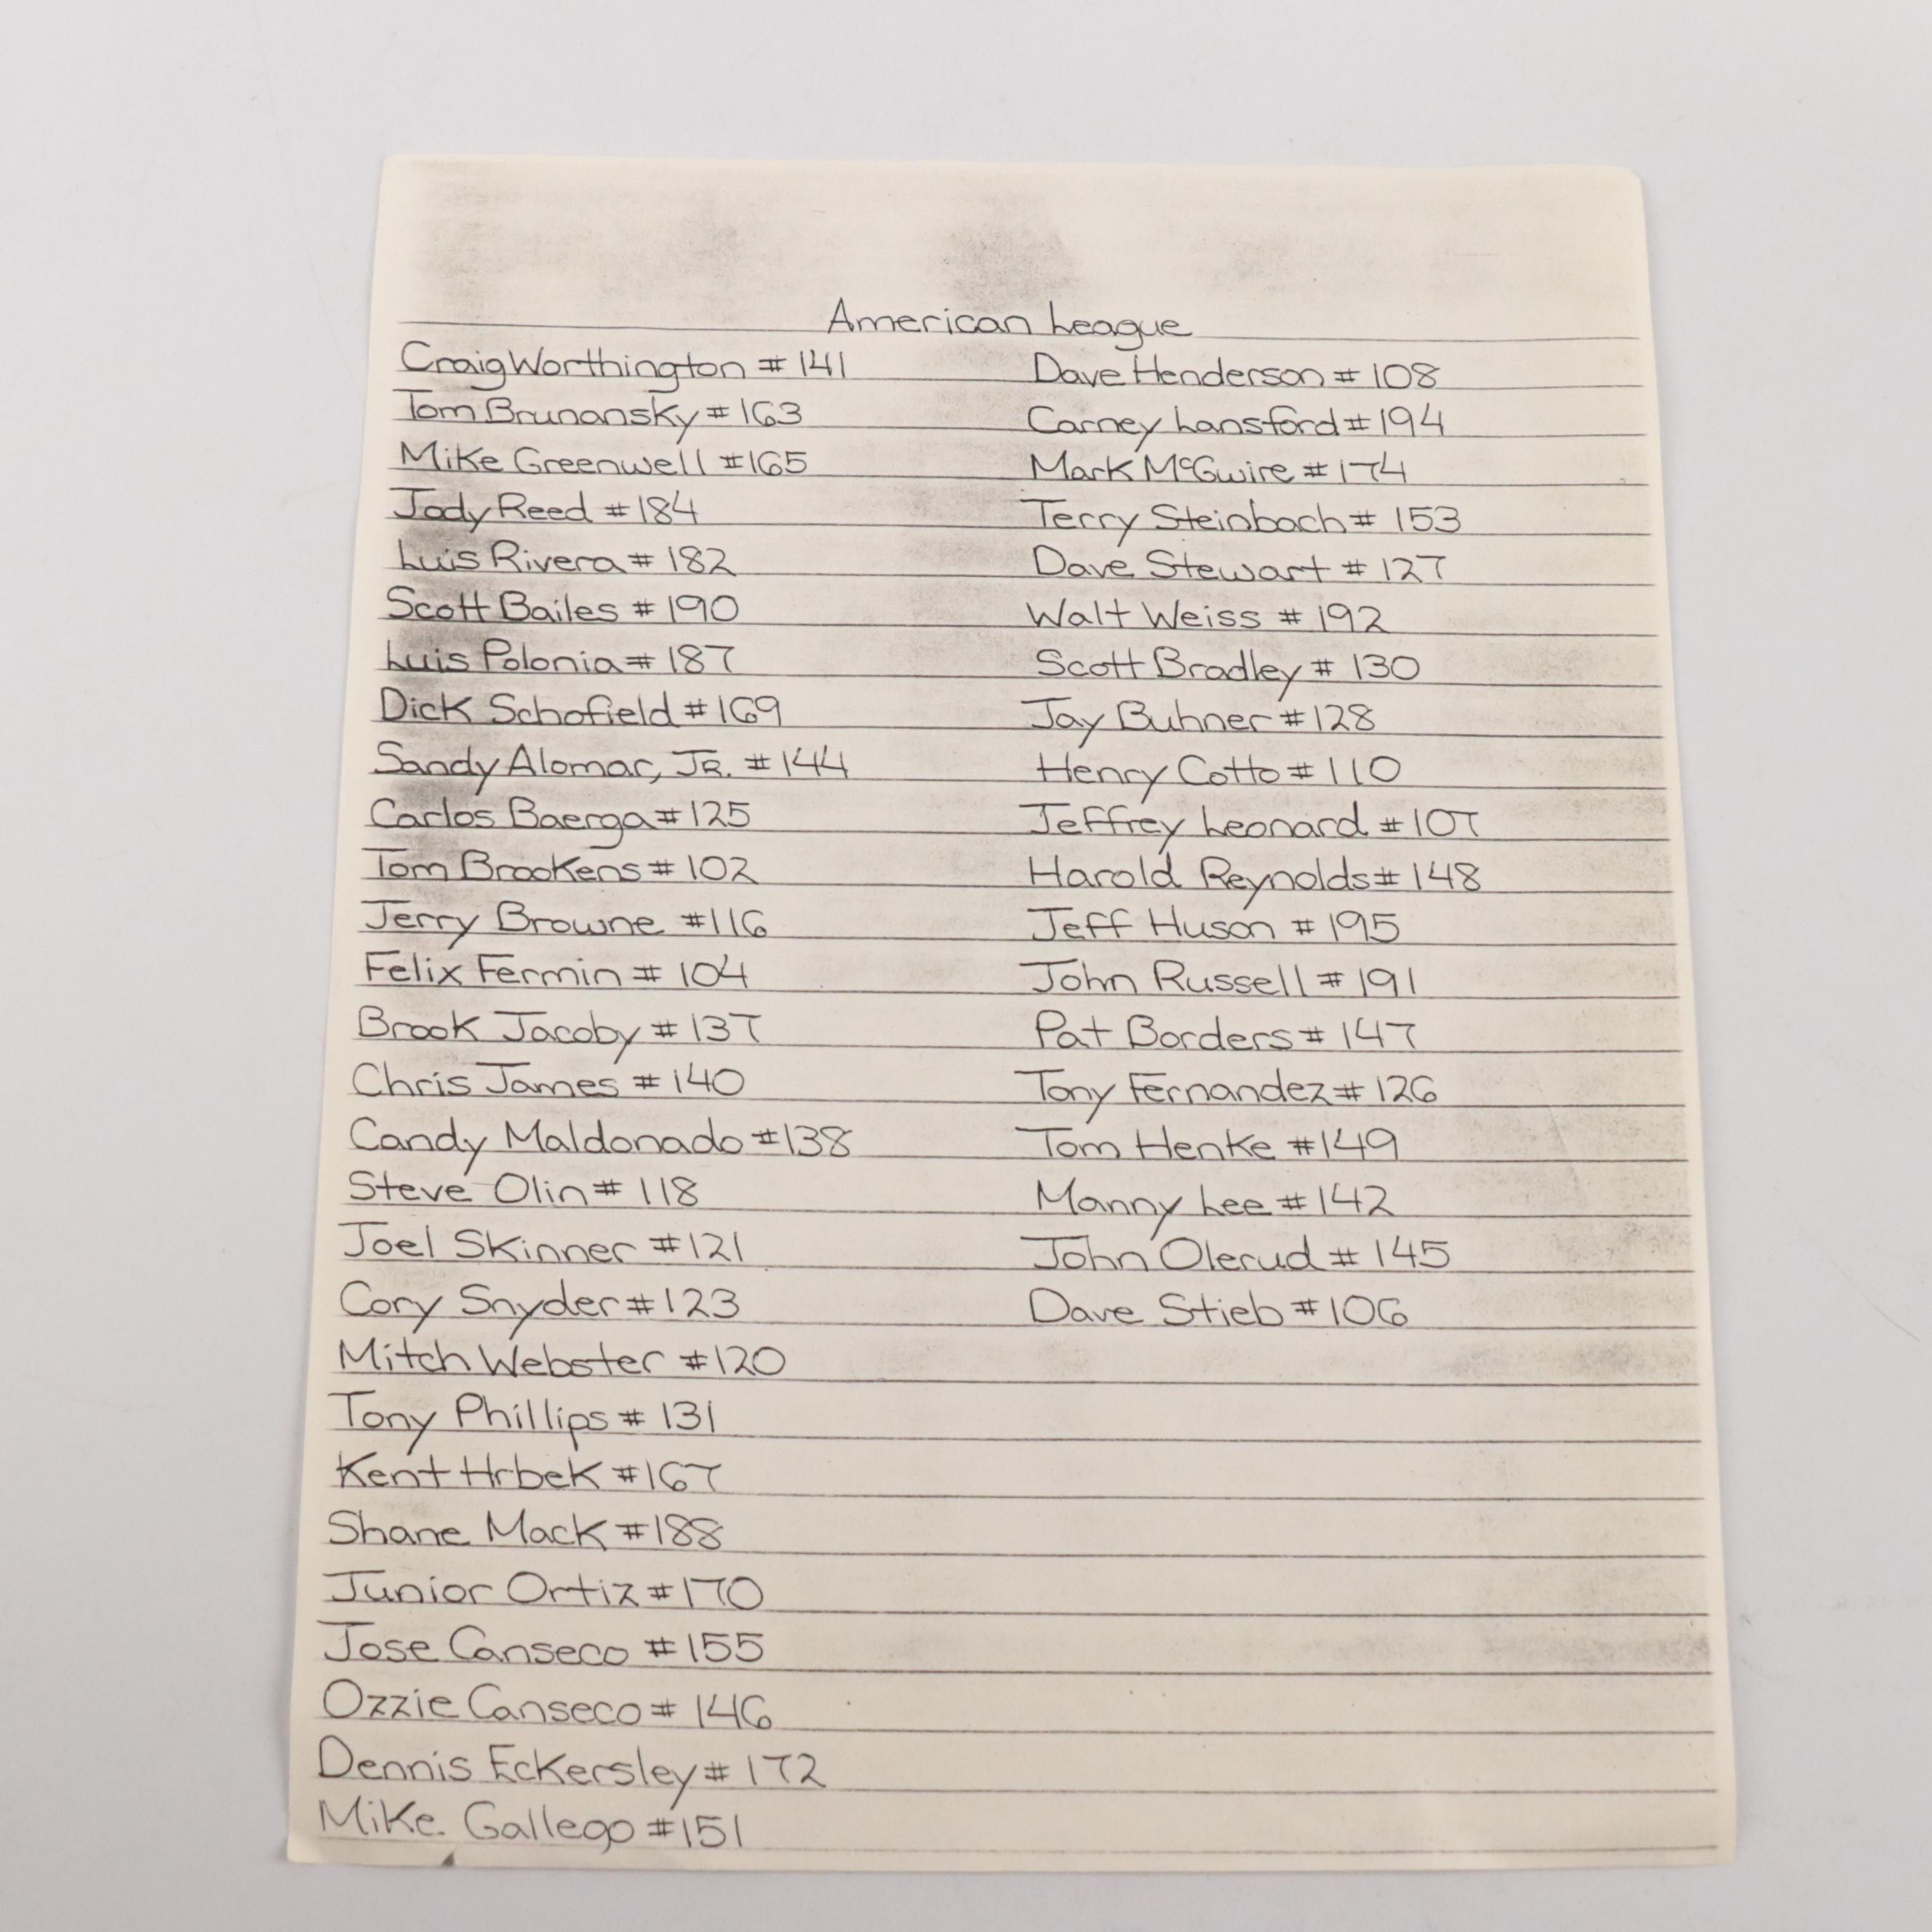 American League
Craig Worthington # 141
Tom Brunansky # 163
Mike Greenwell # 165
Jody Reed # 184
Luis Rivera # 182
Scott Bailes # 190
Luis Polonia # 187
Dick Schofield # 169
Sandy Alomar, JR. # 144
Carlos Baerga # 125
Tom Brookens # 102
Jerry Browne # 116
Felix Fermin # 104
Brook Jacoby # 137
Chris James # 140
Candy Maldonado # 138
Steve Olin # 118
Joel Skinner # 121
Cory Snyder # 123
Mitch Webster # 120
Tony Phillips # 131
Kent Hrbek # 167
Shane Mack # 188
Junior Ortiz # 170
Jose Canseco # 155
Ozzie Canseco # 146
Dennis Eckersley # 172
Mike. Gallego # 151
Dave Henderson # 108
Carney Lansford # 194
Mark McGwire # 174
Terry Steinbach # 153
Dave Stewart # 127
Walt Weiss # 192
Scott Bradley # 130
Jay Buhner # 128
Henry Cotto # 110
Jeffrey Leonard # 107
Harold Reynolds # 148
Jeff Huson # 195
John Russell # 191
Pat Borders # 147
Tony Fernandez # 126
Tom Henke # 149
Manny Lee # 142
John Olerud # 145
Dave Stieb # 106